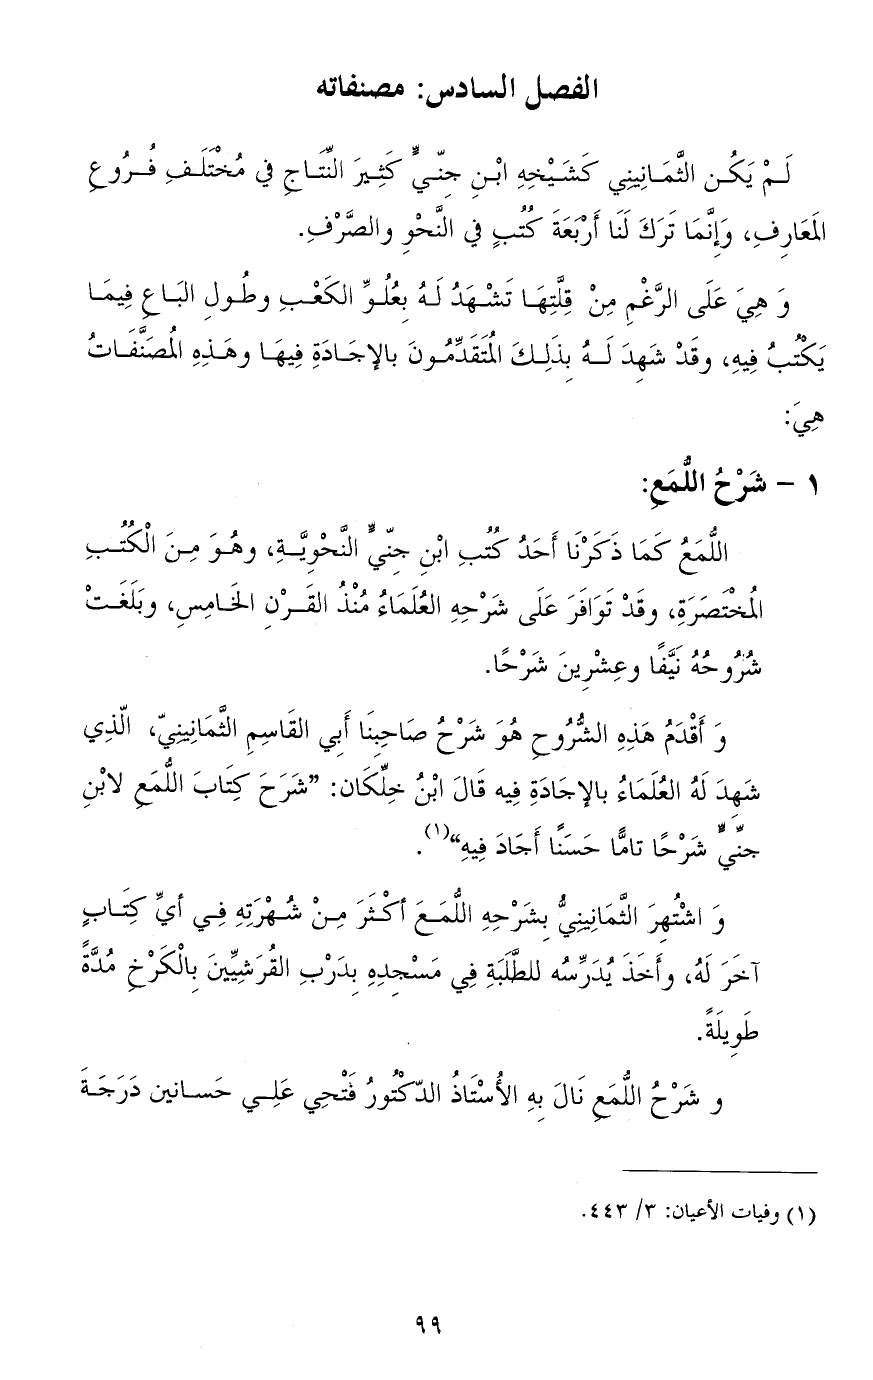 الفصل السادس: مصنفاته
لَمْ يَكُن الثَّمَانِينِي كَشَيْخِهِ ابْنِ جنّيٍّ كَثِيرَ النَّتَاجِ فِي مُخْتَلَفِ فُرُوعِ
المَعَارِفِ، وَإِنَّمَا تَرَكَ لَنَا أَرْبَعَةَ كُتُبٍ فِي النَّحْوِ والصَّرْفِ.
وَ هِيَ عَلَى الرَّغْمِ مِنْ قِلَّتِهَا تَشْهَدُ لَهُ بِعُلُوِّ الكَعْبِ وطُولِ البَاعِ فِيمَا
يَكْتُبُ فِيهِ، وقَدْ شَهِدَ لَهُ بِذَلِكَ المُتَقَدِّمُونَ بالإجَادَةِ فِيهَا وهَذِهِ المُصَنَّفَاتُ
هِيَ:
١ - شَرْحُ اللُّمَعِ:
اللُّمَعُ كَمَا ذَكَرْنَا أَحَدُ كُتُبِ ابْنِ جنّيٍّ النَّحْوِيَّةِ، وهُوَ مِنَ الْكُتُبِ
المُخْتَصَرَةِ، وقَدْ تَوَافَرَ عَلَى شَرْحِهِ العُلَمَاءُ مُنْذُ القَرْنِ الخَامِسِ، وبَلَغَتْ
شُرُوحُهُ نَيِّفًا وعِشْرِينَ شَرْحًا.
وَ أَقْدَمُ هَذِهِ الشُّرُوحِ هُوَ شَرْحُ صَاحِبِنَا أَبي القَاسِمِ الثَّمَانِينِيّ، الّذِي
شَهِدَ لَهُ العُلَمَاءُ بالإجَادَةِ فِيهِ قَالَ ابْنُ خلِّكَان: "شَرَحَ كِتَابَ اللُّمَعِ لابْنِ
جنّيٍّ شَرْحًا تامًّا حَسَنًا أَجَادَ فِيهِ"(١).
وَ اشْتُهِرَ الثَّمَانِينِيُّ بِشَرْحِهِ اللُّمَعَ أَكْثَرَ مِنْ شُهْرَتِهِ فِي أيِّ كِتَابٍ
آخَرَ لَهُ، وأَخَذَ يُدَرِّسُه للطَّلَبَةِ فِي مَسْجِدِهِ بِدَرْبِ القُرَشِيِّينَ بِالْكَرْخِ مُدَّةً
طَوِيلَةً.
و شَرْحُ اللُّمَعِ نَالَ بِهِ الأُسْتَاذُ الدّكْتُورُ فَتْحِي عَلِي حَسانين دَرَجَةَ
(١) وفيات الأعيان: ٣/ ٤٤٣.
٩٩